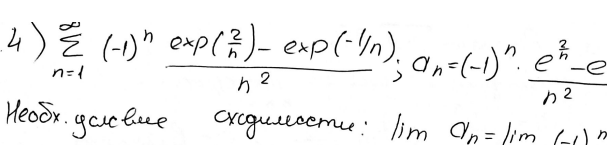 4) ∑_{n=1}^{∞} (-1)^n (exp(2/n) - exp(-1/n))/n^2; a_n = (-1)^n · (e^{2/n} - e)/n^2
Необх. условие сходимости: lim a_n = lim (-1)^n